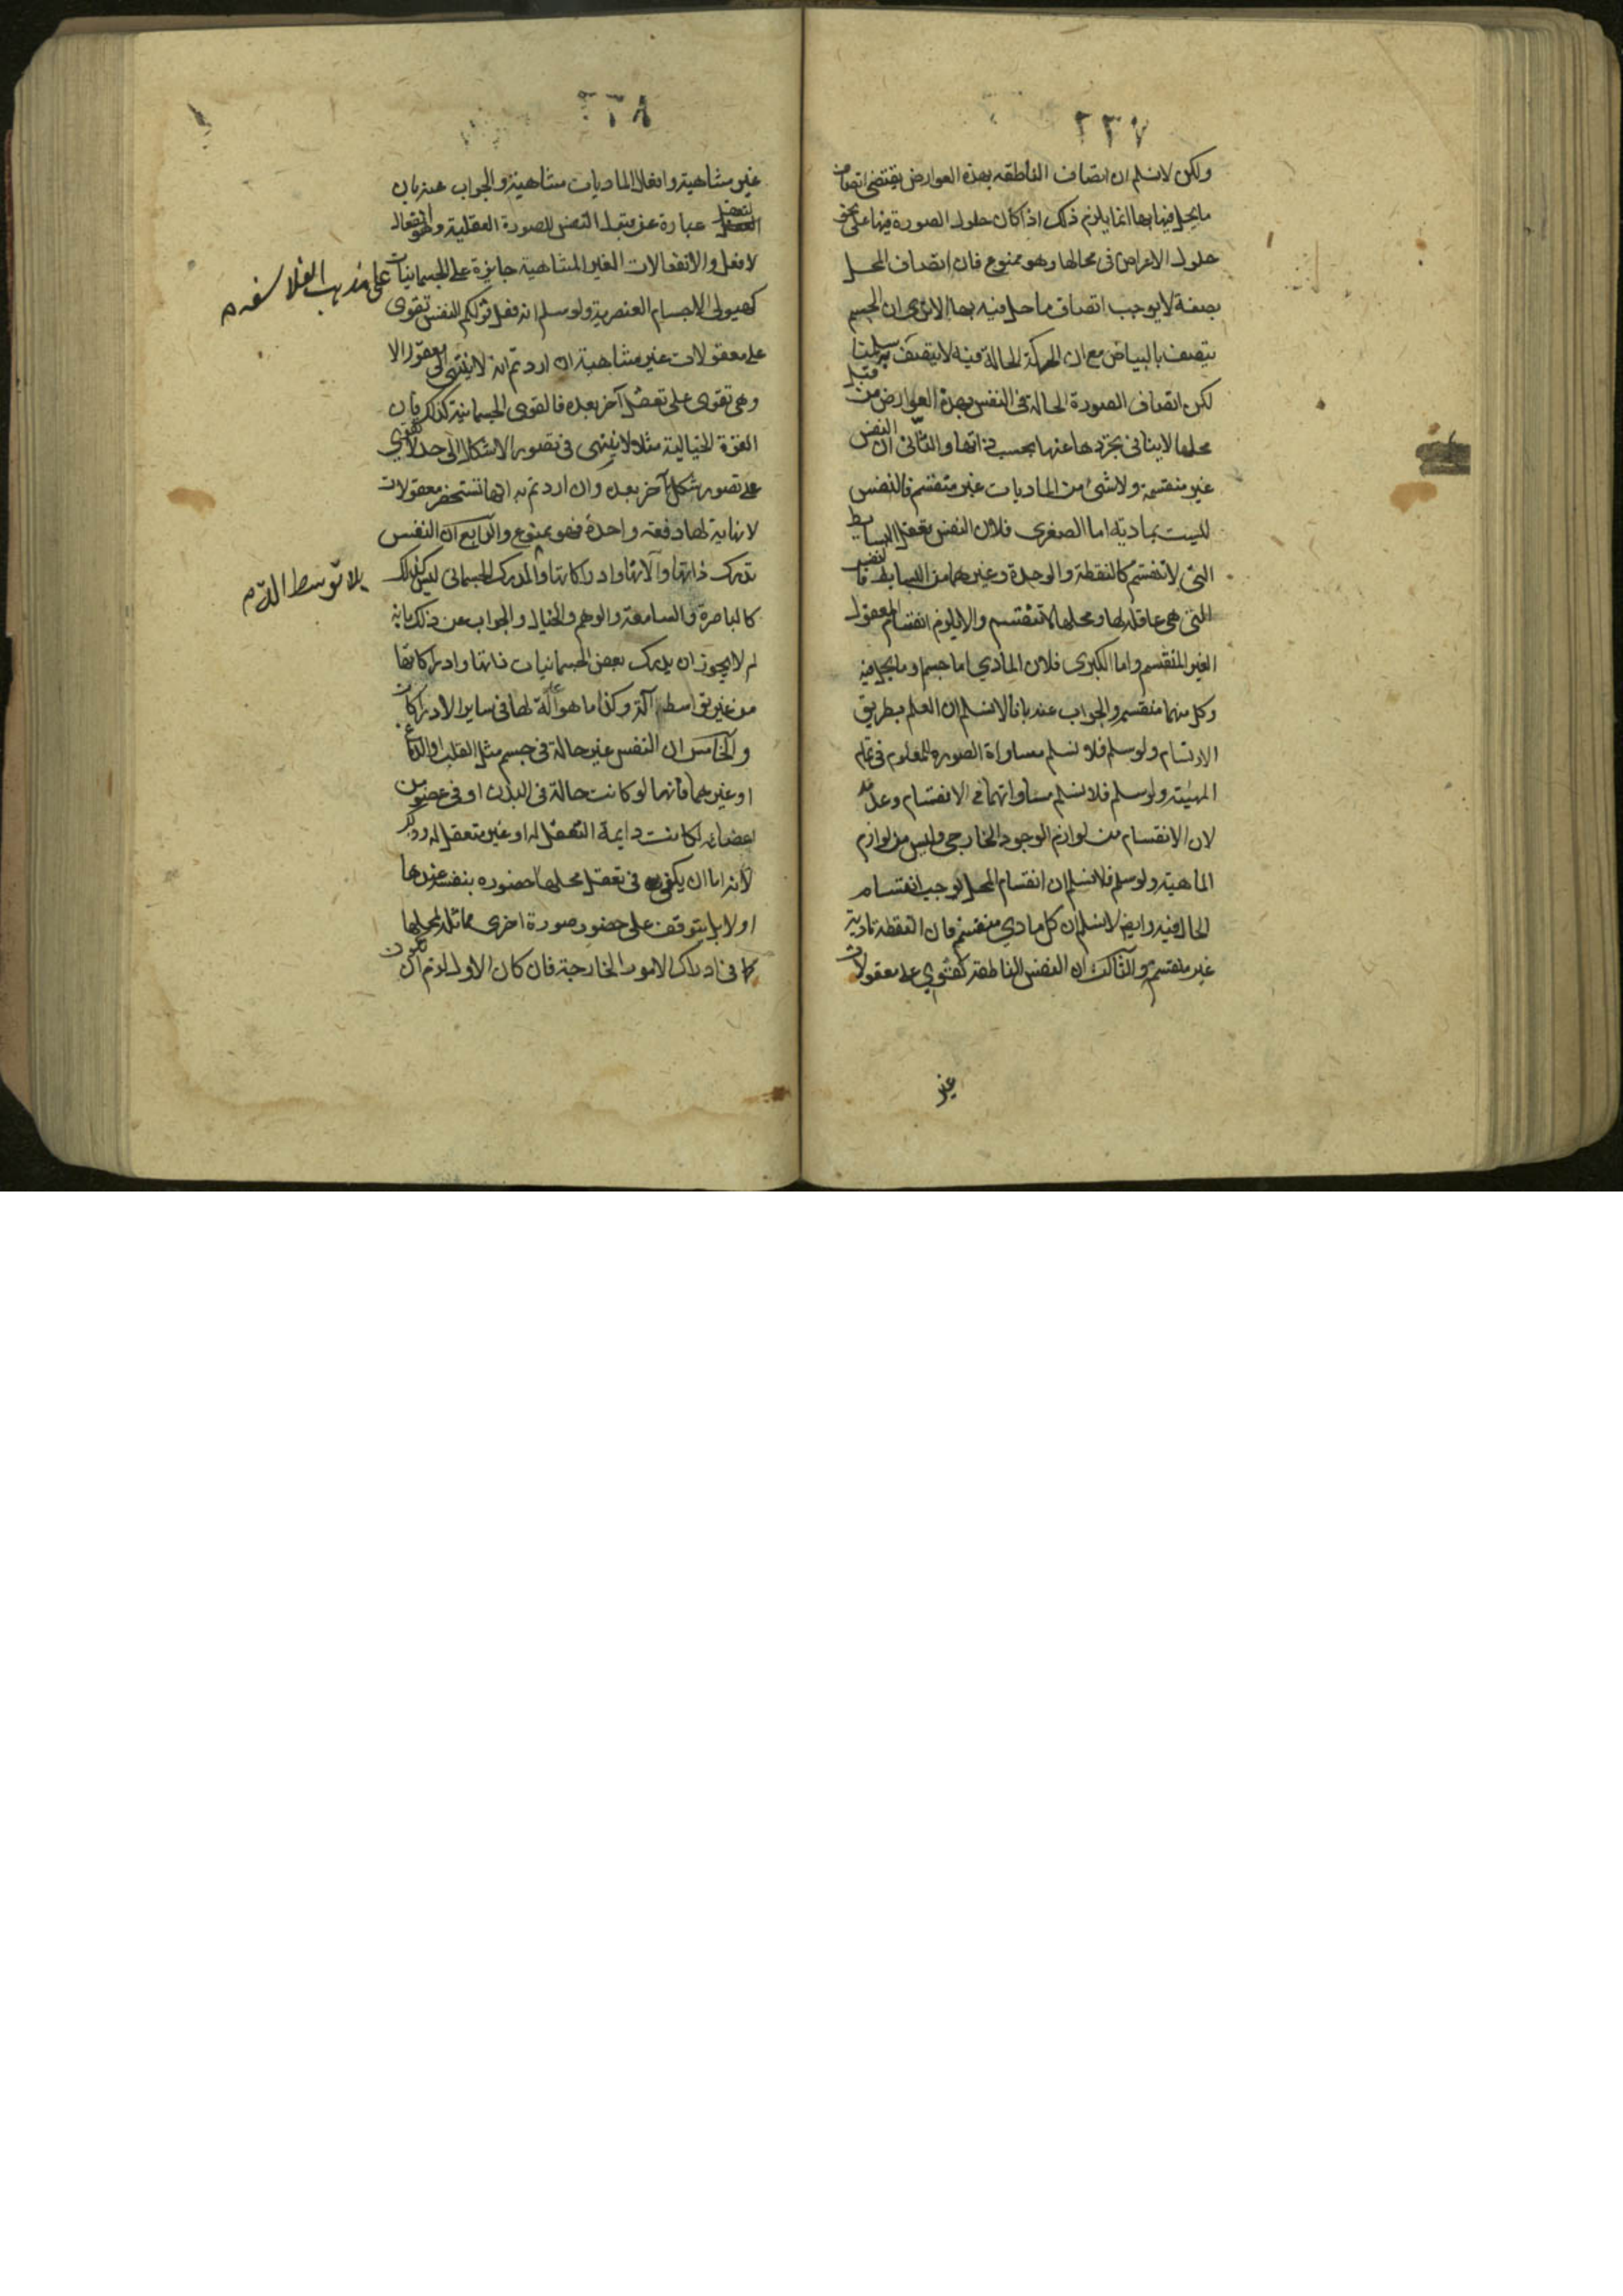 ٢٣٧
ولكن لا نسلم ان اتصاف الناطقه بهذه العوارض يقتضى اتصاف
ما يحل فيها بها انما يلزم ذلك اذا كان حلول الصورة فيها على نحو
حلول الاعراض فى محالها وهو ممنوع فان اتصاف المحل
بصفة لا يوجب اتصاف ما حل فيه بها الا ترى ان الجسم
يتصف بالبياض مع ان الحركة الحالة فيه لا يتصف به سلمنا
لكن اتصاف الصورة الحالة فى النفس بهذه العوارض من قبل
محلها لا ينافى تجردها عنها بحسب ذاتها والثانى ان النفس
غير منقسمة ولا شئ من الماديات غير منقسم فالنفس
ليست بمادية اما الصغرى فلان النفس تعقل البسايط
التى لا تنقسم كالنقطة والوحدة وغيرهما من البسايط فالنفس
التى هى عاقلة لها ومحلها لا تنقسم والا يلزم انقسام المعقول
الغير المنقسم واما الكبرى فلان المادي اما جسم وما يحل فيه
وكل منهما منقسم والجواب عنه بانا لا نسلم ان العلم بطريق
الارتسام ولو سلم فلا نسلم مساواة الصورة للمعلوم فى تمام
المهيّة ولو سلم فلا نسلم مساواتهما فى الانقسام وعدمه
لان الانقسام من لوازم الوجود الخارجى وليس من لوازم
الماهية ولو سلم فلا نسلم ان انقسام المحل يوجب انقسام
الحال فيه وايض لا نسلم ان كل مادي منقسم فان النقطة مادية
غير منقسم والثالث ان النفس الناطقة تقوي على معقولات
غير
٢٣٨
غير متناهية وافعال الماديات متناهية والجواب عنه بان
التعقل عبارة عن قبول النفس للصورة العقلية وهو انفعال
لا فعل والانفعالات الغير المتناهية جايزة على الجسمانيات
على مذهب الفلاسفه م
كهيولى الاجسام العنصرية ولو سلم انه فعل قولكم النفس تقوى
على معقولات غير متناهية ان اردتم انه لا ينتهى الى معقول الا
وهى تقوى على تعقل آخر بعده فالقوى الجسمانية كذلك فان
القوة الخيالية مثلا لا ينتهى فى تصور الاشكال الى حد لا تقوي
على تصور شكل آخر بعده وان اردتم به انها تستحضر معقولات
لا نهاية لها دفعة واحدة فهو ممنوع والرابع ان النفس
تدرك ذاتها وآلاتها وادراكاتها والمدرك الجسمانى ليس كذلك
بلا توسط الة م
كالباصرة والسامعة والوهم والخيال والجواب عن ذلك بانه
لم لا يجوز ان يدرك بعض الجسمانيات ذاتها وادراكاتها
من غير تواسطه آلة وكذا ما هو آلة لها فى ساير الادراكات
والخامس ان النفس غير حالة فى جسم مثل القلب او الدماغ
او غيرهما فانها لو كانت حالة فى البدن او فى عضو من
اعضائه لكانت دايمة التعقل له او غير متعقل له
لانه اما ان يكفى فى تعقل محلها حضوره بنفسه عندها
او لا بل يتوقف على حضور صورة اخرى مماثلة لمحلها
كما فى ادراك الامور الخارجة فان كان الاول لزم ان تكون